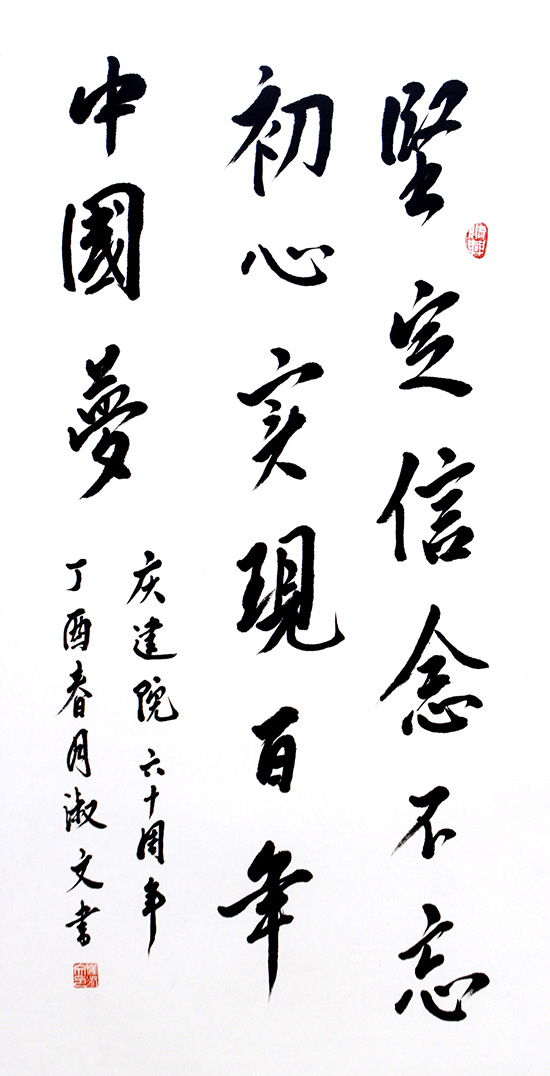 堅定信念不忘
初心实現百年
中國夢
庆建院六十周年
丁酉春月淑文書